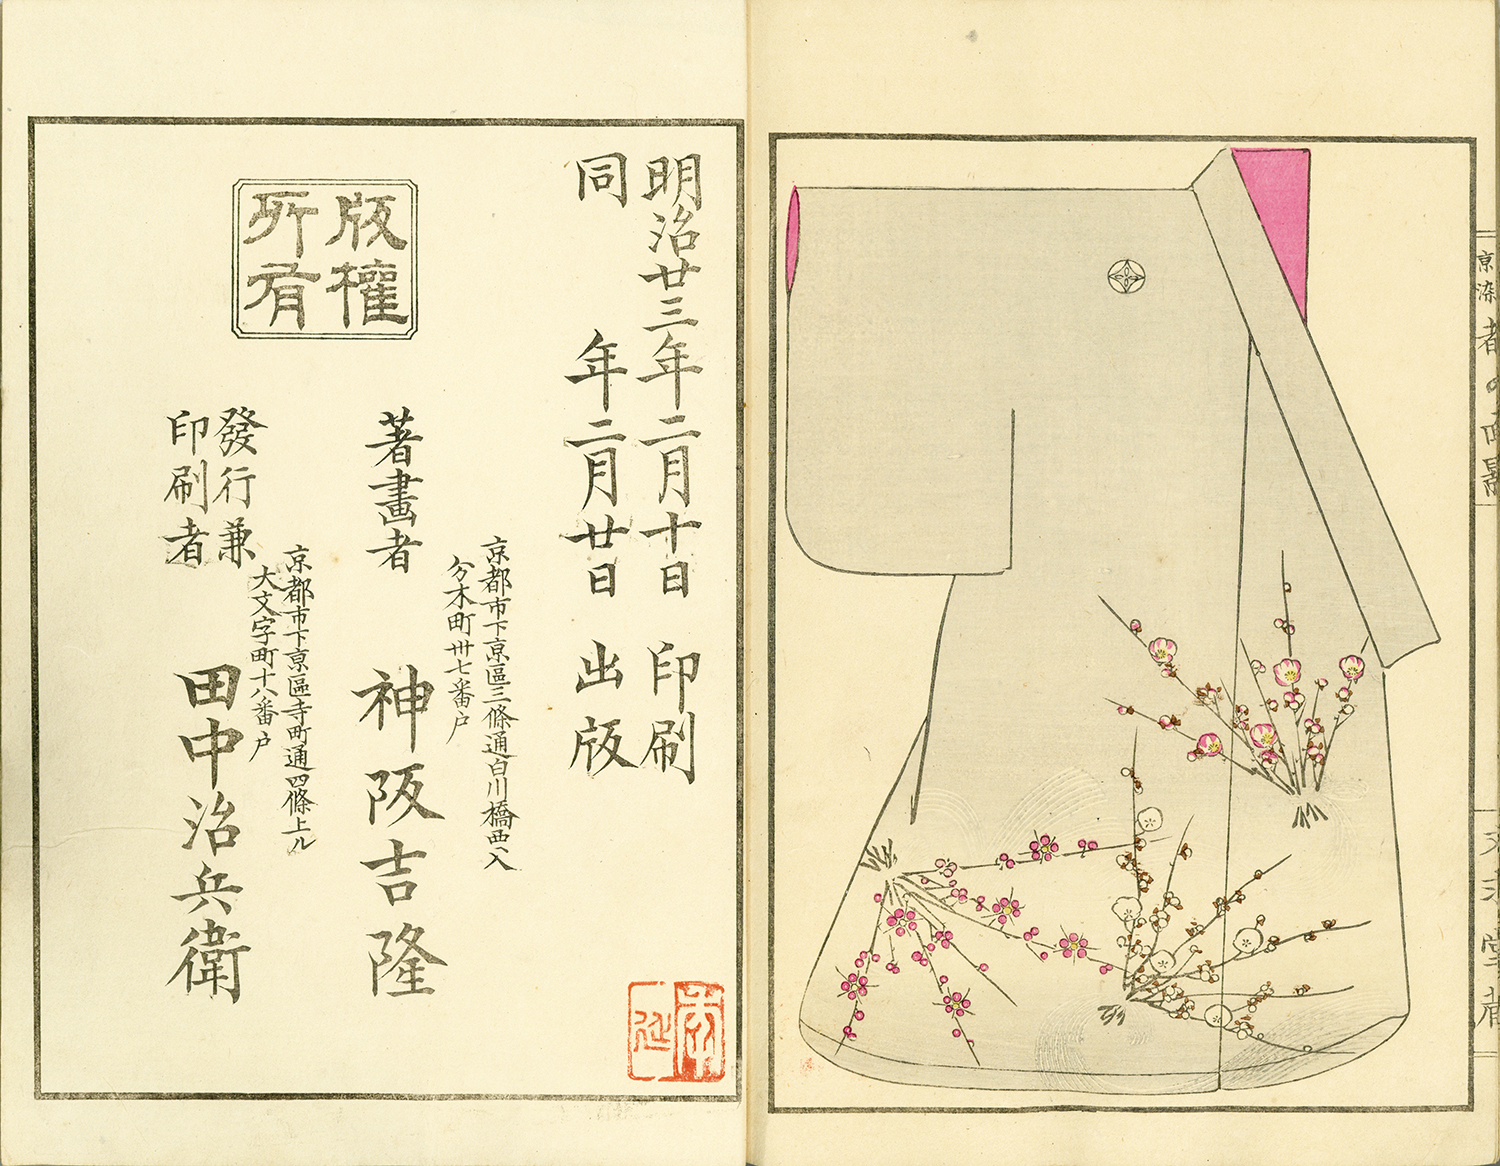 京染
都の面影
明治廿三年二月十日印刷
同年二月廿日出版
京都市下京區三條通白川橋西入
分木町卅七番戸
著畫者 神阪吉隆
京都市下京區寺町通四條上ル
大文字町十八番戸
發行兼
印刷者 田中治兵衛
版權
所有